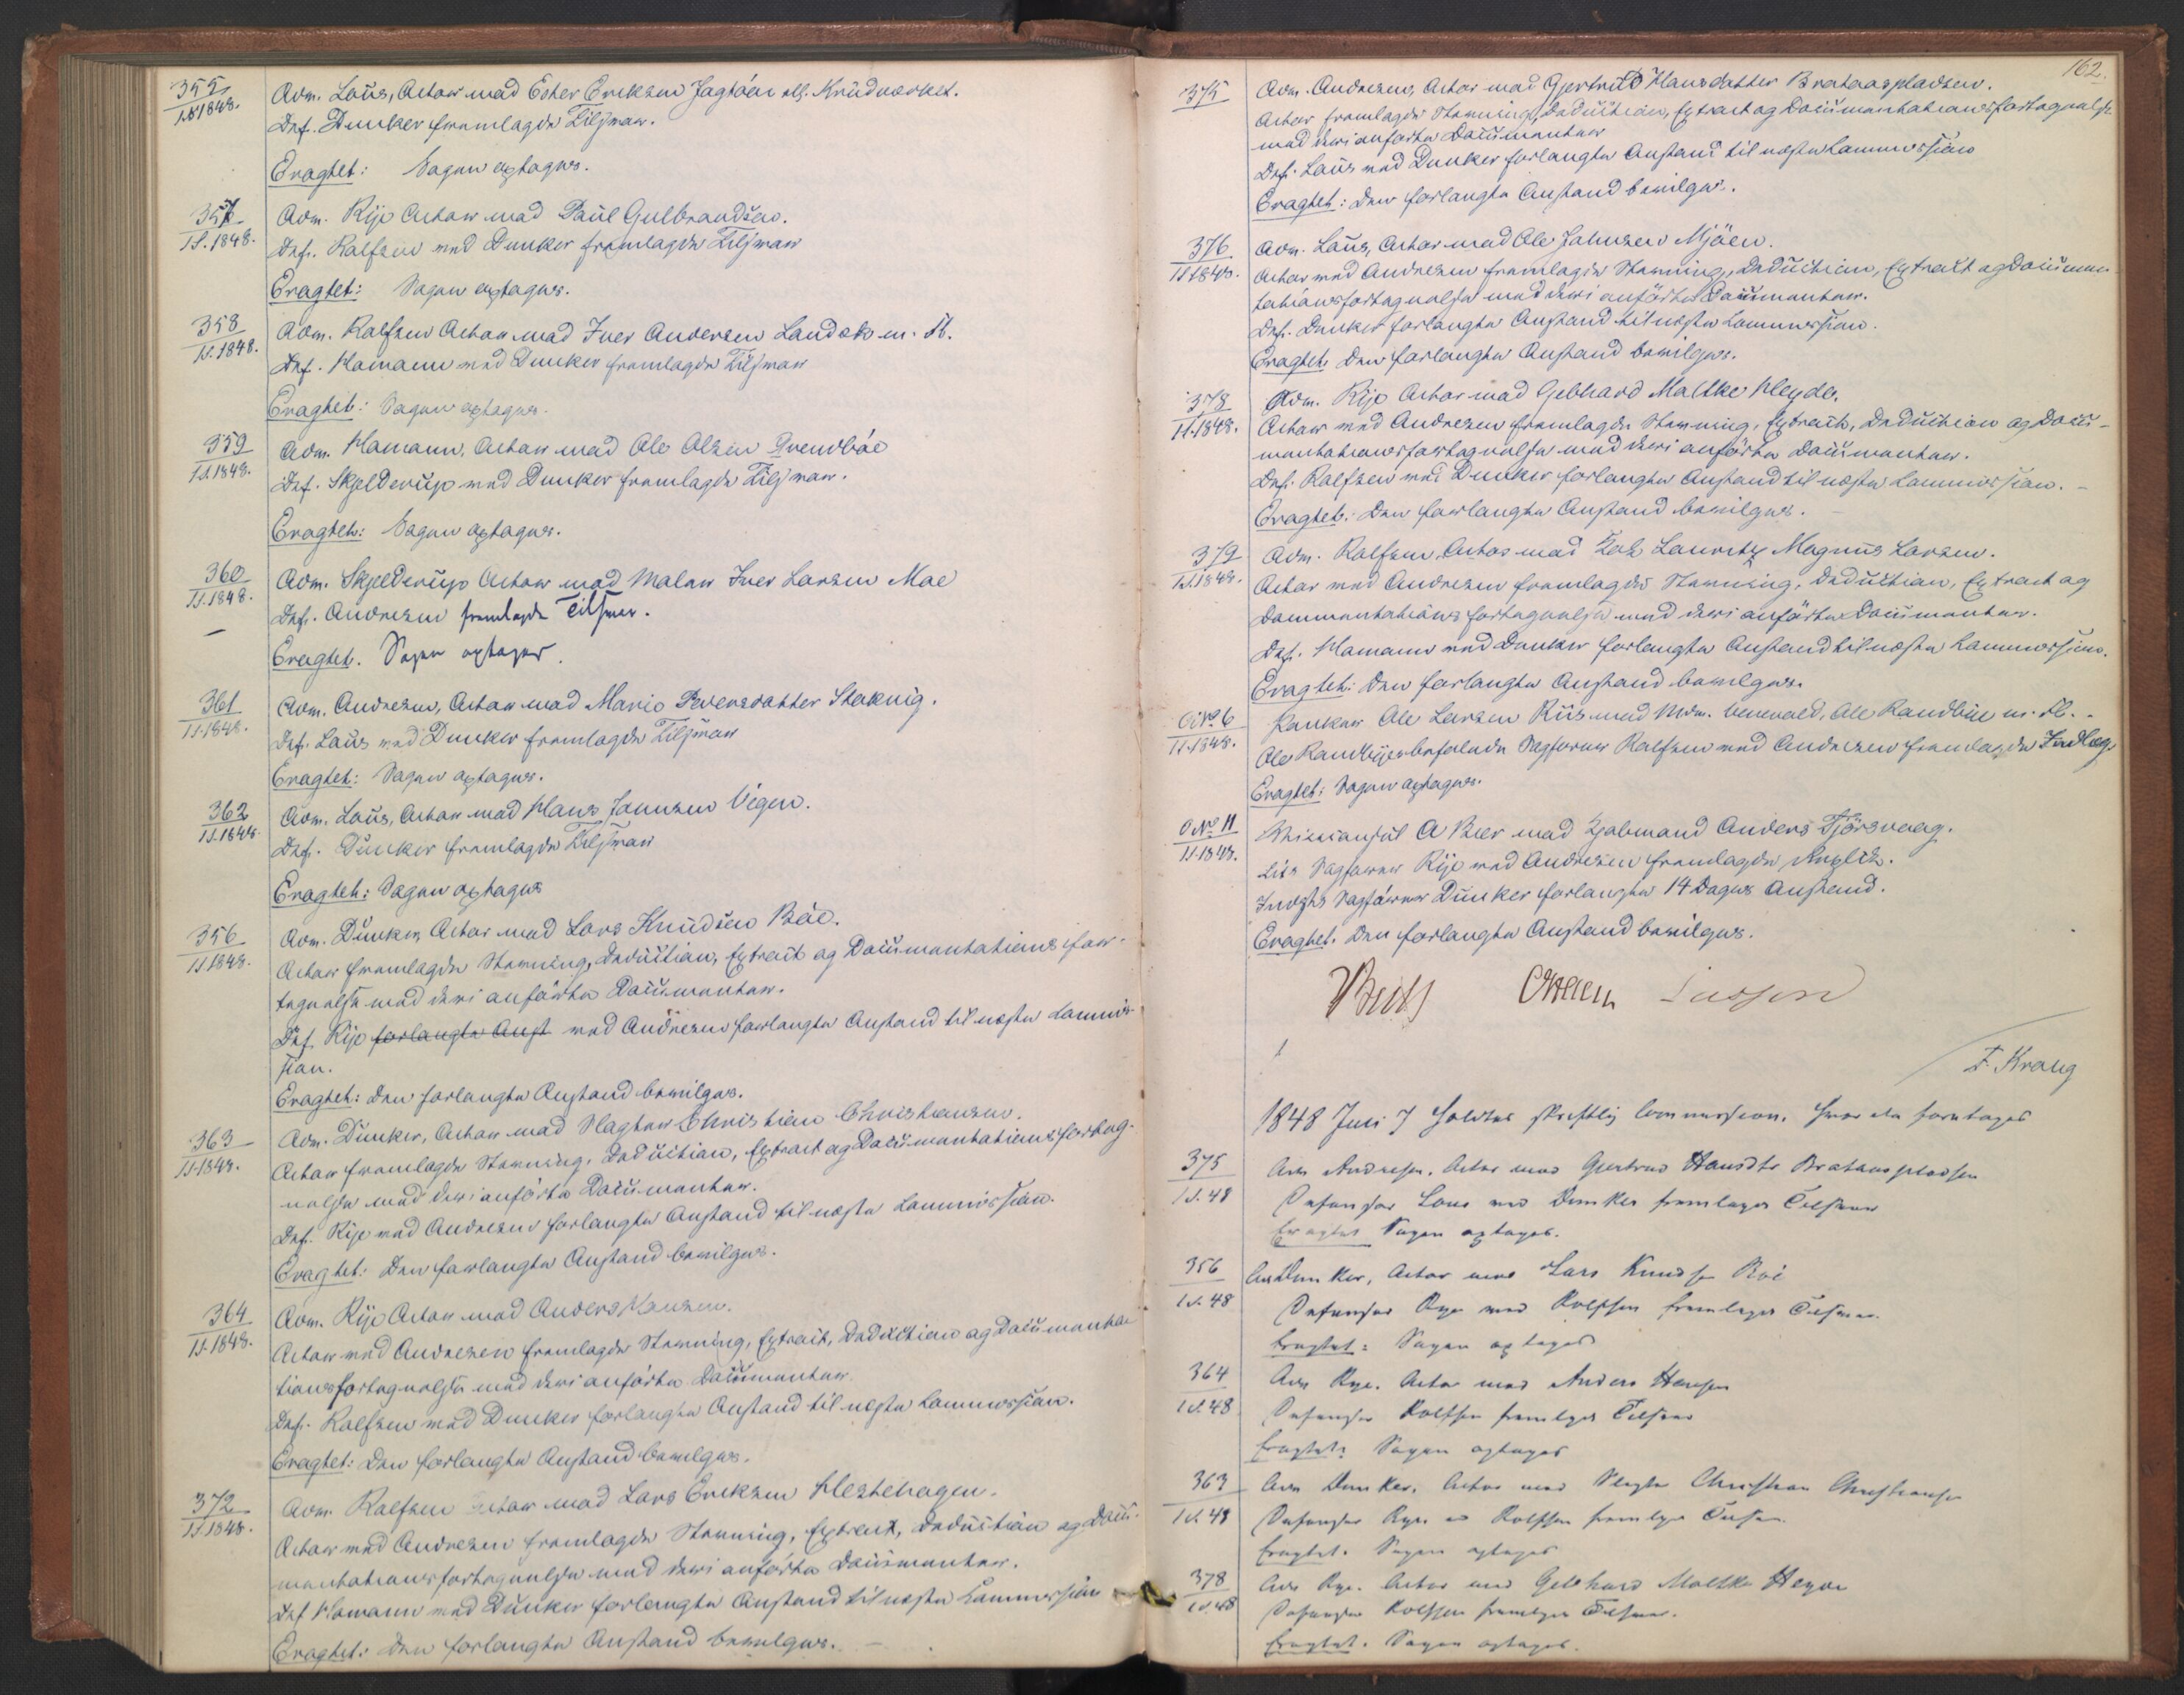 355
1S 1848.
Adv. Lous, Actor mod Ester Eriksen Jagtöen ell. Krudverket.
Def. Dunker fremlagde Tilsvar.
Eragtet: Sagen optages.
357
1S. 1848.
Adv. Rije Actor mod Paul Gulbrandsen.
Def. Rolfsen med Dunker fremlagde Tilsvar
Eragtet: Sagen optages.
358
1S. 1848.
Adv. Rolfsen Actor mod Iver Andersen Landsko m. fl.
Def. Homann med Dunker fremlagde Tilsvar
Eragtet: Sagen optages.
359
1S. 1848.
Adv. Homann, Actor mod Ole Olsen
Def. Skjelderup med Dunker fremlagde Tilsvar.
Eragtet: Sagen optages.
360
1S. 1848.
Adv. Skjelderup Actor mod Maler Iver Larsen Moe
Def. Andresen fremlagde Tilsvar.
Eragtet. Sagen optages.
361
1S. 1848.
Adv. Andresen, Actor mod Marie Pedersdatter
Def. Lous med Dunker fremlagde Tilsvar
Eragtet: Sagen optages.
362
1S. 1848.
Adv. Lous, Actor mod Hans Jonnsen Vigen.
Def. Dunker fremlagde Tilsvar
Eragtet: Sagen optages
356
1S 1848.
Adv. Dunker, Actor mod Lars Knudsen Böe.
Actor fremlagde Stevning, Deduction, Extract og Documentationsfor-
tegnelse med deri anförte Documenter.
Def. Rije forlangte Anst med Andresen forlangte Anstand til næste Commis-
sion.
Eragtet: Den forlangte Anstand bevilges.
363
1S. 1848.
Adv. Dunker, Actor mod Slagter Christian Christiansen.
Actor fremlagde Stevning, Deduction, Extract og Documentationsforteg-
nelse med deri anförte Documenter.
Def. Rije med Andresen forlangte Anstand til næste Commission.
Eragtet: Den forlangte Anstand bevilges.
364
1S. 1848.
Adv. Rije Actor mod Anders Hansen.
Actor med Andresen fremlagde Stevning, Extract, Deduction og Documenta-
tionsfortegnelse med deri anförte Documenter.
Def. Rolfsen med Dunker forlangte Anstand til næste Commission.
Eragtet: Den forlangte Anstand bevilges.
372
1S. 1848.
Adv. Rolfsen Actor mod Lars Eriksen Hestehagen.
Actor med Andresen fremlagde Stevning, Extract, Deduction og Docu-
mentationsfortegnelse med deri anförte Documenter.
Def Homann med Dunker forlangte Anstand til næste Commission
Eragtet: Den forlangte Anstand bevilges.
162.
375
Adv. Andresen, Actor mod Gjertrud Hansdatter Brataaspladsen.
Actor fremlagde Stevning, Deduction, Extract og Documentationsfortegnelse
med deri anførte Documenter
Def. Lous med Dunker forlangte Anstand til næste Commission
Eragtet: Den forlangte Anstand bevilges.
376
1S 1848.
Adv. Lous, Actor mod Ole Johnsen Mjöen.
Actor med Andresen fremlagde Stevning, Deduction, Extract og Documen-
tationsfortegnelse med deri anförte Documenter.
Def. Dunker forlangte Anstand til næste Commission.
Eragtet: Den forlangte Anstand bevilges.
378
1S. 1848.
Adv. Rije Actor mod Gebhard Moltke Heyde.
Actor med Andresen fremlagde Stevning, Extract, Deduction og Docu-
mentationsfortegnelse med deri anförte Documenter.
Def. Rolfsen med Dunker forlangte Anstand til næste Commission. -
Eragtet: Den forlangte Anstand bevilges. -
379
1S. 1848.
Adv. Rolfsen, Actor mod Lauritz Magnus Larsen.
Actor med Andresen fremlagde Stevning, Deduction, Extract og
Documentationsfortegnelse med deri anförte Documenter.
Def. Homann med Dunker forlangte Anstand til næste Commission.
Eragtet: Den forlangte Anstand bevilges.
O. No. 6
1S. 1848.
Ole Larsen Riis mod Ole Randbye m. fl. -
Ole Randbyes befalede Sagfører Rolfsen med Andresen fremlagde Indlæg.
Eragtet: Sagen optages.
O No 11
1S. 1848.
Viceconsul A Beer mod Gjæstgiver Anders Tjörsvaag.
Sagfører Rije med Andresen fremlagde Replik.
Indstv Sagförer Dunker forlangte 14 Dages Anstand.
Eragtet. Den forlangte Anstand bevilges.
F. Krag
1848 Juni 7 holdtes skriftlig Commission, hvor da foretoges
375
1S. 48
Adv Andresen, Actor mod Gjertrud Hansdtr Brataaspladsen
Defensor Lous med Dunker fremlagde Tilsvar
Eragtet Sagen optages.
356
1S. 48
Adv Dunker, Actor mod Lars Knudsen Böe
Defensor Rye med Rolfsen fremlagde Tilsvar.
Eragtet: Sagen optages
364
1S. 48
Adv Rye, Actor mod Anders Hansen
Defensor Rolfsen fremlagde Tilsvar
Eragtet: Sagen optages
363
1S. 48
Adv Dunker, Actor mod Slagter Christian Christiansen
Defensor Rye m Rolfsen fremlagde Tilsvar.
Eragtet. Sagen optages
378
1S. 48
Adv Rye. Actor mod Gebhard Moltke Heyde
Defensor Rolfsen fremlagde Tilsvar.
Eragtet. Sagen optages.